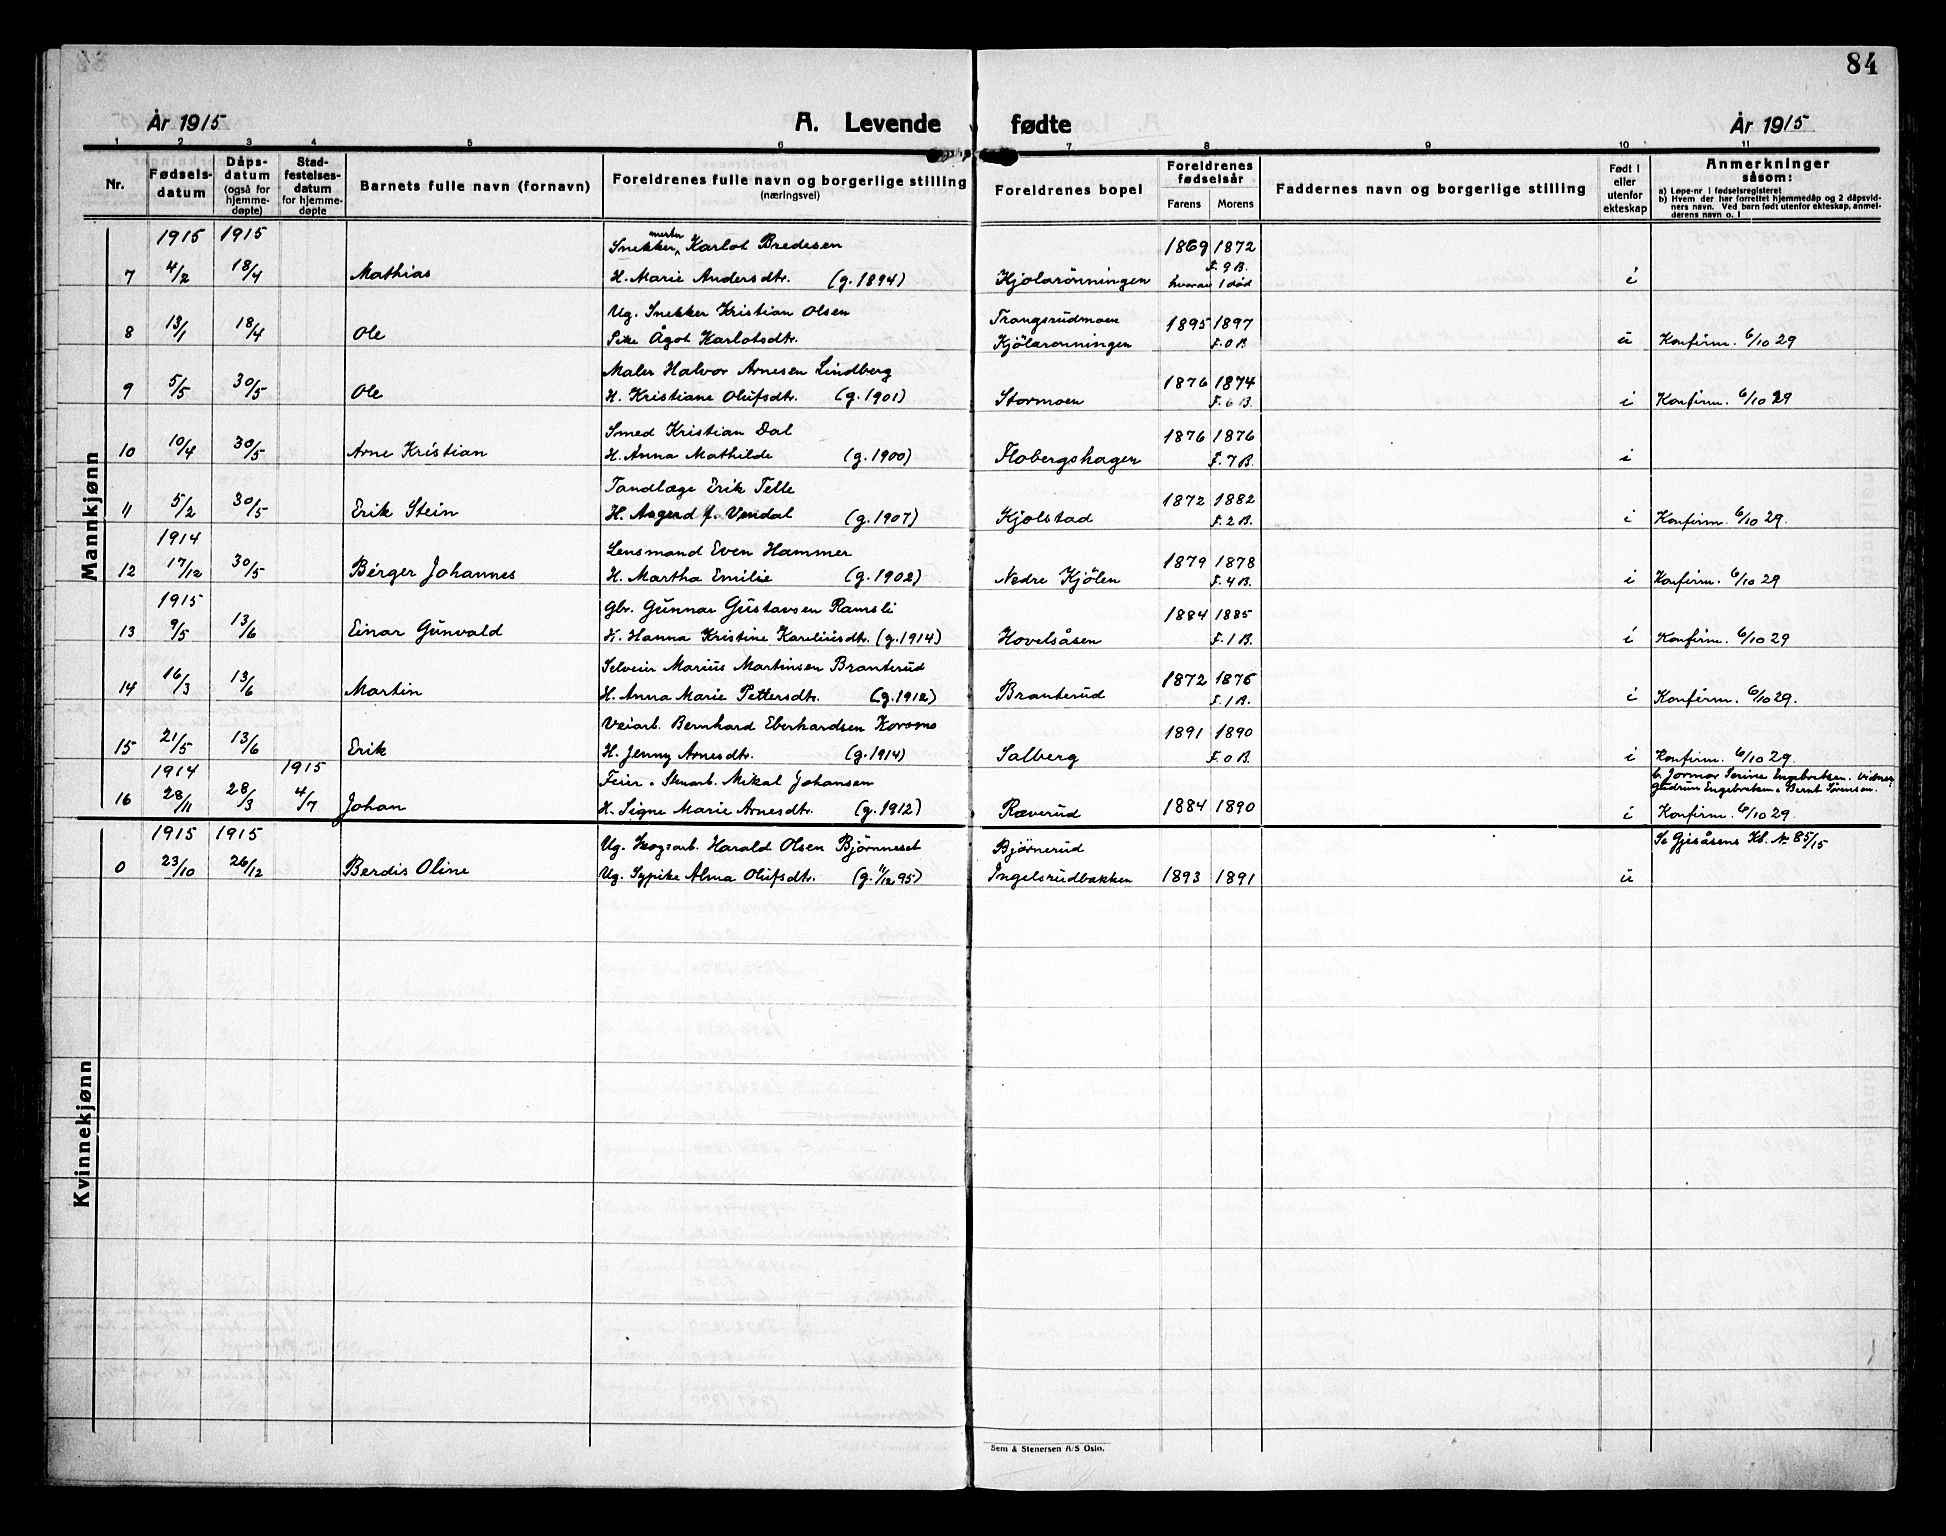 84
År 1915
A. Levende
fødte
År 1915
1 2 3 4 5 6 7 8 9 10 11
Nr.
Fødsels-
datum
Dåps-
datum
(også for
hjemme-
døpte)
Stad-
festelses-
datum
for hjemme-
døpte
Barnets fulle navn (fornavn)
Foreldrenes fulle navn og borgerlige stilling
(næringsvei)
Foreldrenes bopel
Foreldrenes
fødselsår
Farens Morens
Faddernes navn og borgerlige stilling
Født i
eller
utenfor
ekteskap
Anmerkninger
såsom:
a) Løpe-nr. i fødselsregisteret
b) Hvem der har forrettet hjemmedåp og 2 dåpsvid-
ners navn. Ved barn født utenfor ekteskap, anmel-
derens navn o. l
Mannkjønn
1915 1915 Snekkermester Karlot Bredesen 1869 1872
F. 9 B.
7 4/2 18/4 Mathias H. Marie Andersdtr. (g. 1894) Kjolarönningen hvorav 1 död i
Ug. Snekker Kristian Olsen Trangsrudmoen 1895 1897
8 13/1 18/4 Ole Pike Ågot Karlotsdtr. Kjölarönningen F. 0 B u Konfirm. 6/10 29
Maler Halvor Arnesen Lindberg 1876 1874
9 5/5 30/5 Ole H. Kristiane Olufsdtr. (g. 1901) Stormoen F. 6 B. i Konfirm. 6/10 29
Smed Kristian Dal 1876 1876
10 10/4 30/5 Arne Kristian H. Anna Mathilde (g. 1900) Flobergshagen F. 7 B. i
Tandlæge Erik Telle 1872 1882
11 5/2 30/5 Erik Stein H. Aagerd f. Vendal (g. 1907) Kjölstad F. 2 B. i Konfirm. 6/10 29.
1914 Lensmand Even Hammer 1879 1878
12 17/12 30/5 Bérger Johannes H. Martha Emilie (g. 1902) Nedre Kjölen F. 4 B. i Konfirm. 6/10 29
1915 Gbr. Gunnar Gustavsen Ramsli 1884 1885
13 9/5 13/6 Einar Gunvald H. Hanna Kristine Kareliusdtr. (g. 1914) Hovelsåsen F. 1 B. i Konfirm. 6/10 29
Selveier Marius Martinsen Branterud 1872 1876
14 16/3 13/6 Martin H. Anna Marie Pettersdtr. (g. 1912) Branterud F. 1 B. i Konfirm. 6/10 29.
Veiarb. Bernhard Eberhardsen Korsmo 1891 1890
15 21/5 13/6 Erik H. Jenny Arnesdtr. (g. 1914) Salberg F. 0 B. i Konfirm. 6/10 29.
1914 1915 Feier o Stenarb. Mikal Johansen b. Jormor Serine Engebretsen. Vidner,
Gudrun Engebretsen o Bernt Sørensen.
16 28/11 28/3 4/7 Johan H. Signe Marie Arnesdtr. (g. 1912) Ræverud 1884 1890 i Konfirm. 6/10 29.
Kvinnekjønn
1915 1915 Ug. Skogsarb. Harald Olsen Björnneset Björnerud Se Gjesåsens Kb. Nr 85/15
0 23/10 26/12 Berdis Oline Ug. Sypike Alma Olufsdtr. (g. 1/12 95) Ingelsrudbakken 1893 1891 u
Sem & Stenersen A/S Oslo.